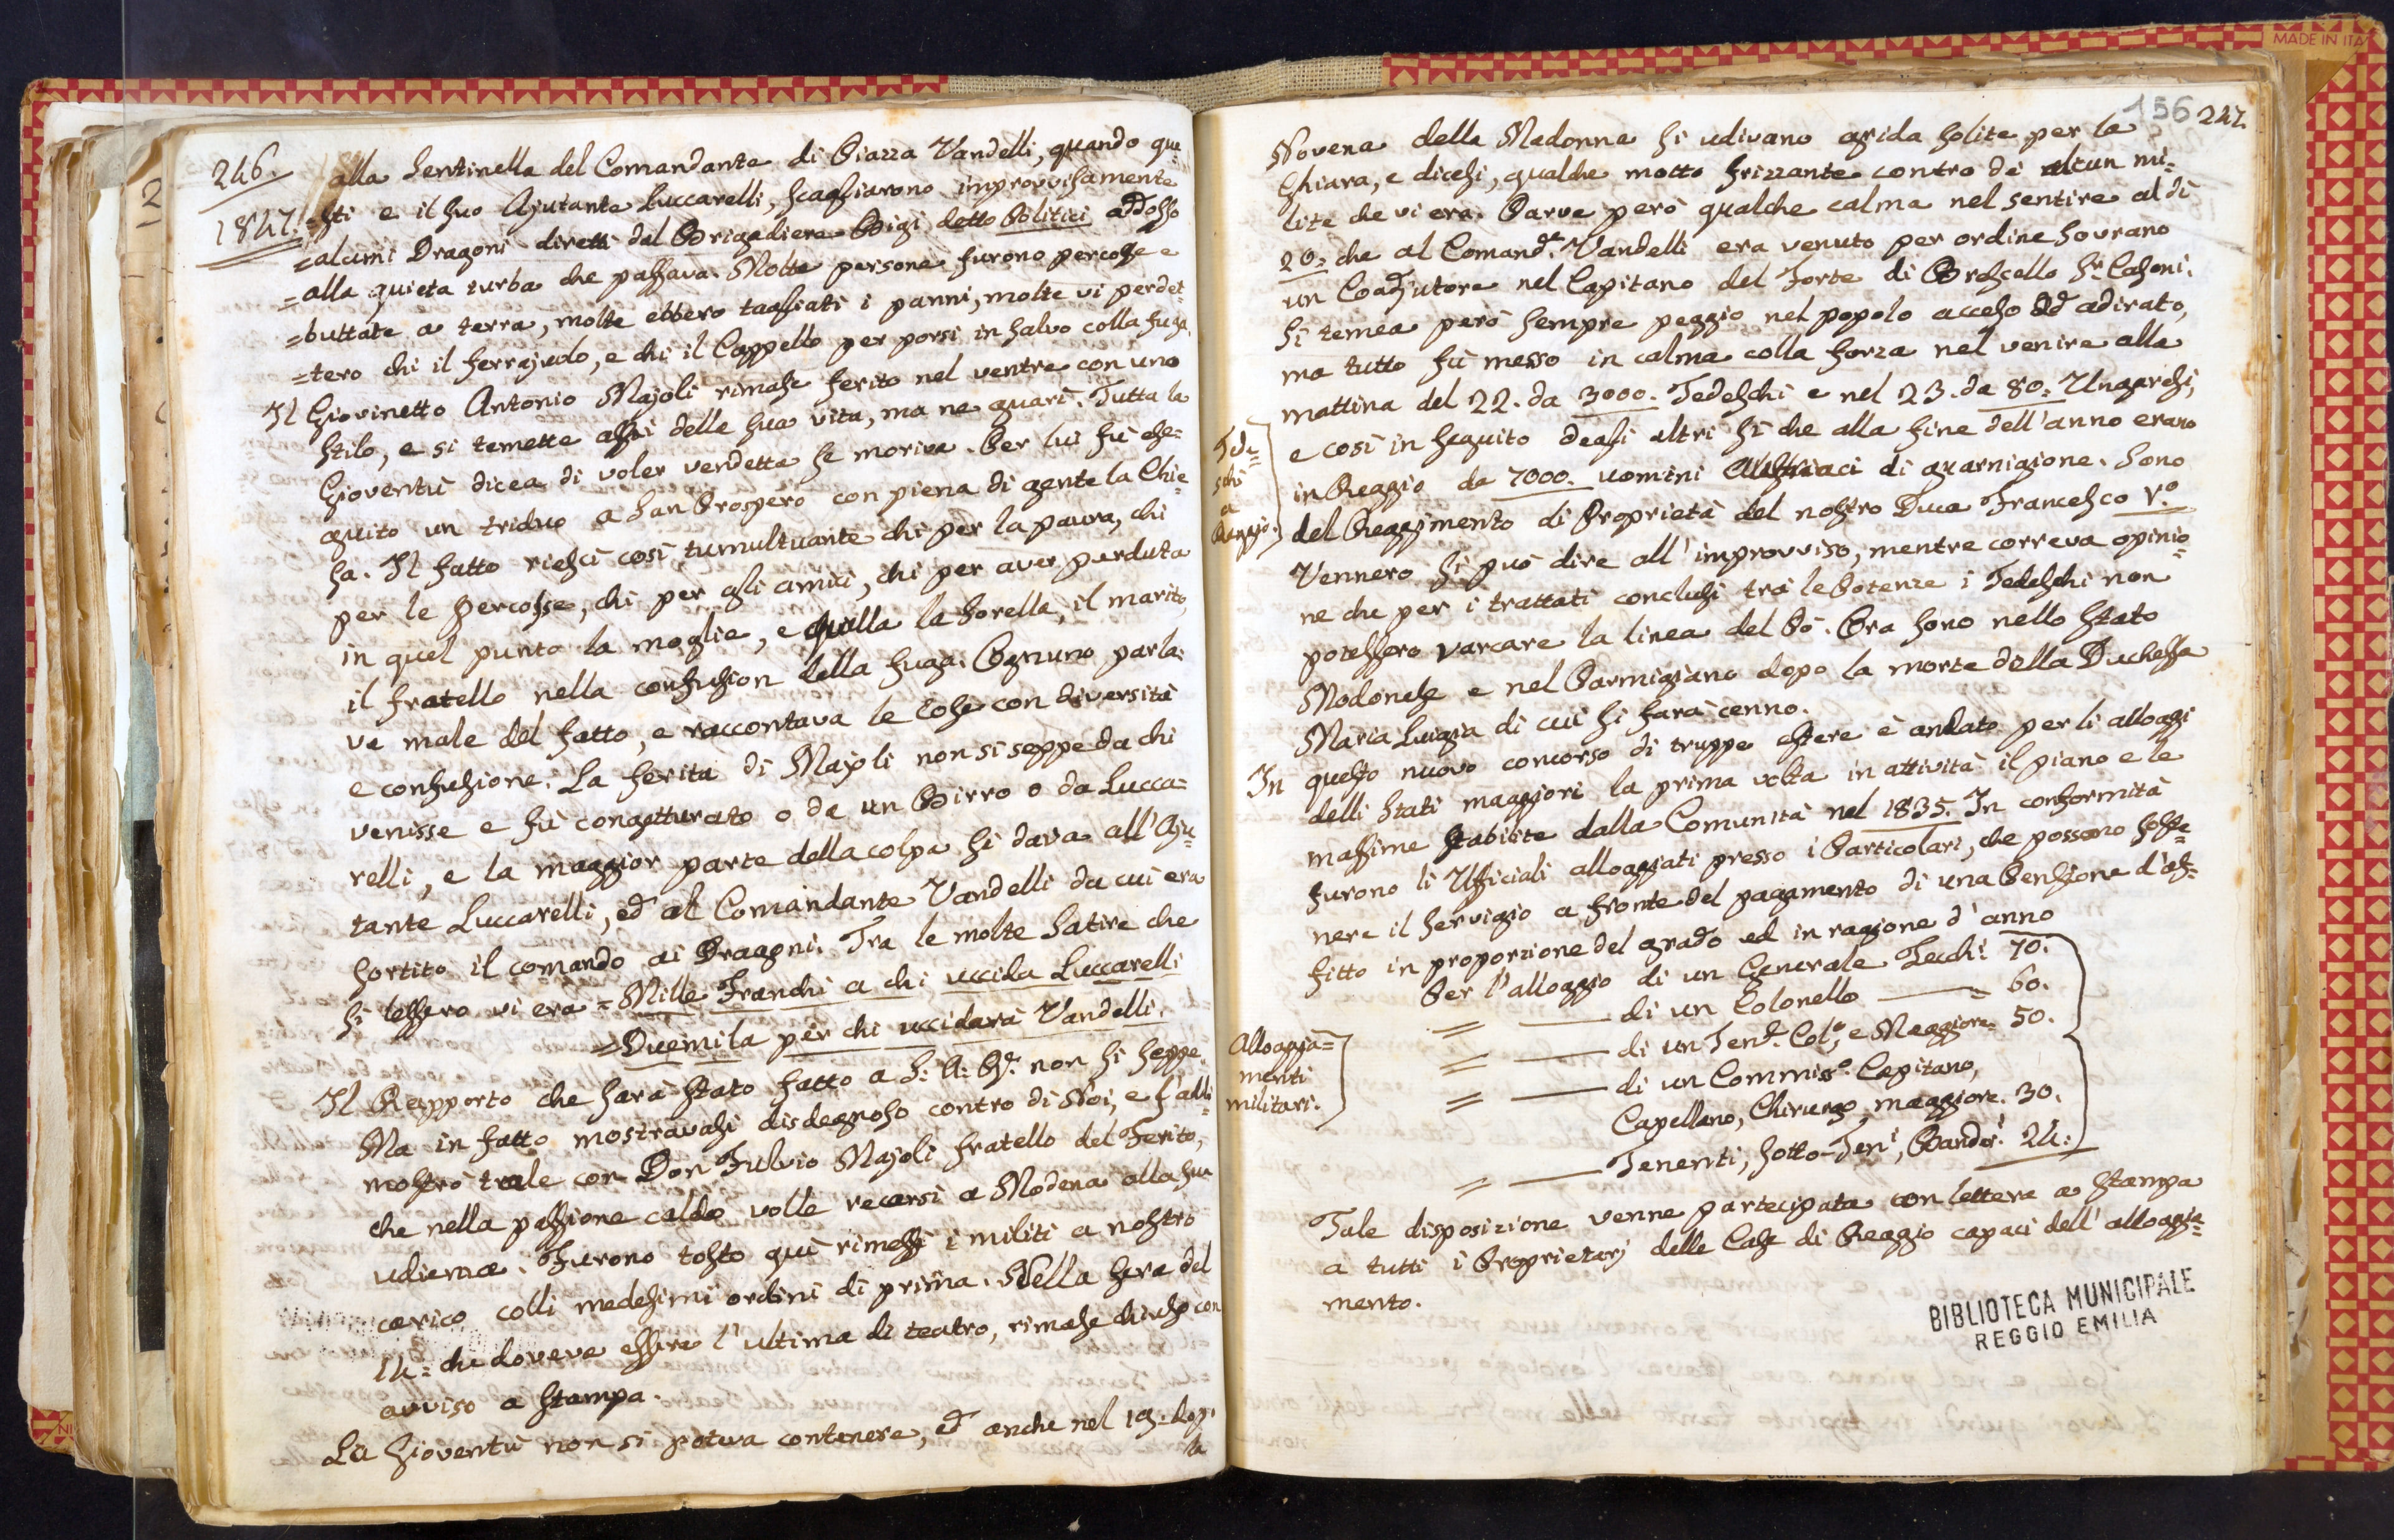 246.
1847.
alla Sentinella del Comandante di Piazza Vandelli, quando que=
=sti e il suo Ajutante Luccarelli, scagliarono improvvisamente
=alcuni Dragoni diretti dal Brigadiere Bigi detto Politici addosso
=alla quieta turba che passava. Molte persone furono percosse e
=buttate a terra, molte ebbero tagliati i panni, molte vi perdet=
=tero chi il ferrajuolo, e chi il Cappello per porsi in salvo colla fuga.
Il Giovinetto Antonio Majoli rimase ferito nel ventre con uno
stilo, e si temette assai della sua vita, ma ne guarì. Tutta la
Gioventù dicea di voler vendetta se moriva. Per lui fù ese=
guito un triduo a San Prospero con piena di gente la Chie=
sa. Il fatto riescì così tumultuante chi per la paura, chi
per le percosse, chi per gli amici, chi per aver perduta
in quel punto la moglie, e quella la sorella, il marito,
il fratello nella confusion della fuga. Ognuno parla=
va male del fatto, e raccontava le cose con diversità
e confusione. La ferita di Majoli non si seppe da chi
venisse e fù congetturato o da un Birro o da Lucca=
relli, e la maggior parte della colpa si dava all'Aju=
tante Luccarelli, ed al Comandante Vandelli da cui era
sortito il comando ai Dragoni. Tra le molte Satire che
si lessero vi era = Mille Franchi a chi uccida Luccarelli
= Duemila per chi ucciderà Vandelli.
Il Rapporto che sarà stato fatto a S: A: R: non si seppe.
Ma in fatto mostravasi disdegnoso contro di Noi, e s'addi=
mostrò tale con Don Fulvio Majoli fratello del Ferito,
che nella passione caldo volle recarsi a Modena alla sua
udienza. Furono tosto qui rimessi i militi a nostro
carico colli medesimi ordini di prima. Nella sera del
14= che doveva essere l'ultima di teatro, rimase chiuso con
avviso a stampa.
La Gioventù non si poteva contenere, ed anche nel 19. dop.
la
156 247.
Novena della Madonna si udivano grida solite per la
Ghiara, e dicesi, qualche motto frizzante contro di alcun mi=
lite che vi era. Parve però qualche calma nel sentire al dì
20= che al Comand.e Vandelli era venuto per ordine Sovrano
un Coadjutore nel Capitano del Forte di Brescello Sr. Casoni.
Si temea però sempre peggio nel popolo acceso ed adirato,
ma tutto fù messo in calma colla forza nel venire alla
mattina del 22. da 3000. Tedeschi e nel 23. da 80. Ungaresi,
e così in seguito degli altri sì che alla fine dell'anno erano
in Reggio da 7000. uomini Austriaci di guarnigione. Sono
del Reggimento di Proprietà del nostro Duca Francesco V.o
Vennero si può dire all'improvviso, mentre correva opinio=
ne che per i trattati conclusi tra le Potenze i Tedeschi non
potessero varcare la linea del Pò. Ora sono nello Stato
Modonese e nel Parmigiano dopo la morte della Duchessa
Maria Luigia di cui si farà cenno.
Tede=
schi
a
Reggio.
In questo nuovo concorso di truppe estere è andato per li alloggi
delli Stati maggiori la prima volta in attività il piano e le
massime stabilite dalla Comunità nel 1835. In conformità
furono li Ufficiali alloggiati presso i Particolari, che possono soste=
nere il servigio a fronte del pagamento di una Pensione d'af=
fitto in proporzione del grado ed in ragione d'anno
Per l'alloggio di un Generale Zecch.i 70.
= — di un Colonello — = 60.
= — di un Ten.e Col.o, e Maggiore= 50.
= — di un Commis.o Capitano,
Capellano, Chirurgo, maggiore. 30.
= — Tenenti, Sotto-Ten.i, Bander.i 24.
Alloggia=
menti
militari.
Tale disposizione venne partecipata con lettera a stampa
a tutti i Proprietarj delle Case di Reggio capaci dell'alloggia=
mento.
BIBLIOTECA MUNICIPALE
REGGIO EMILIA
MADE IN ITA